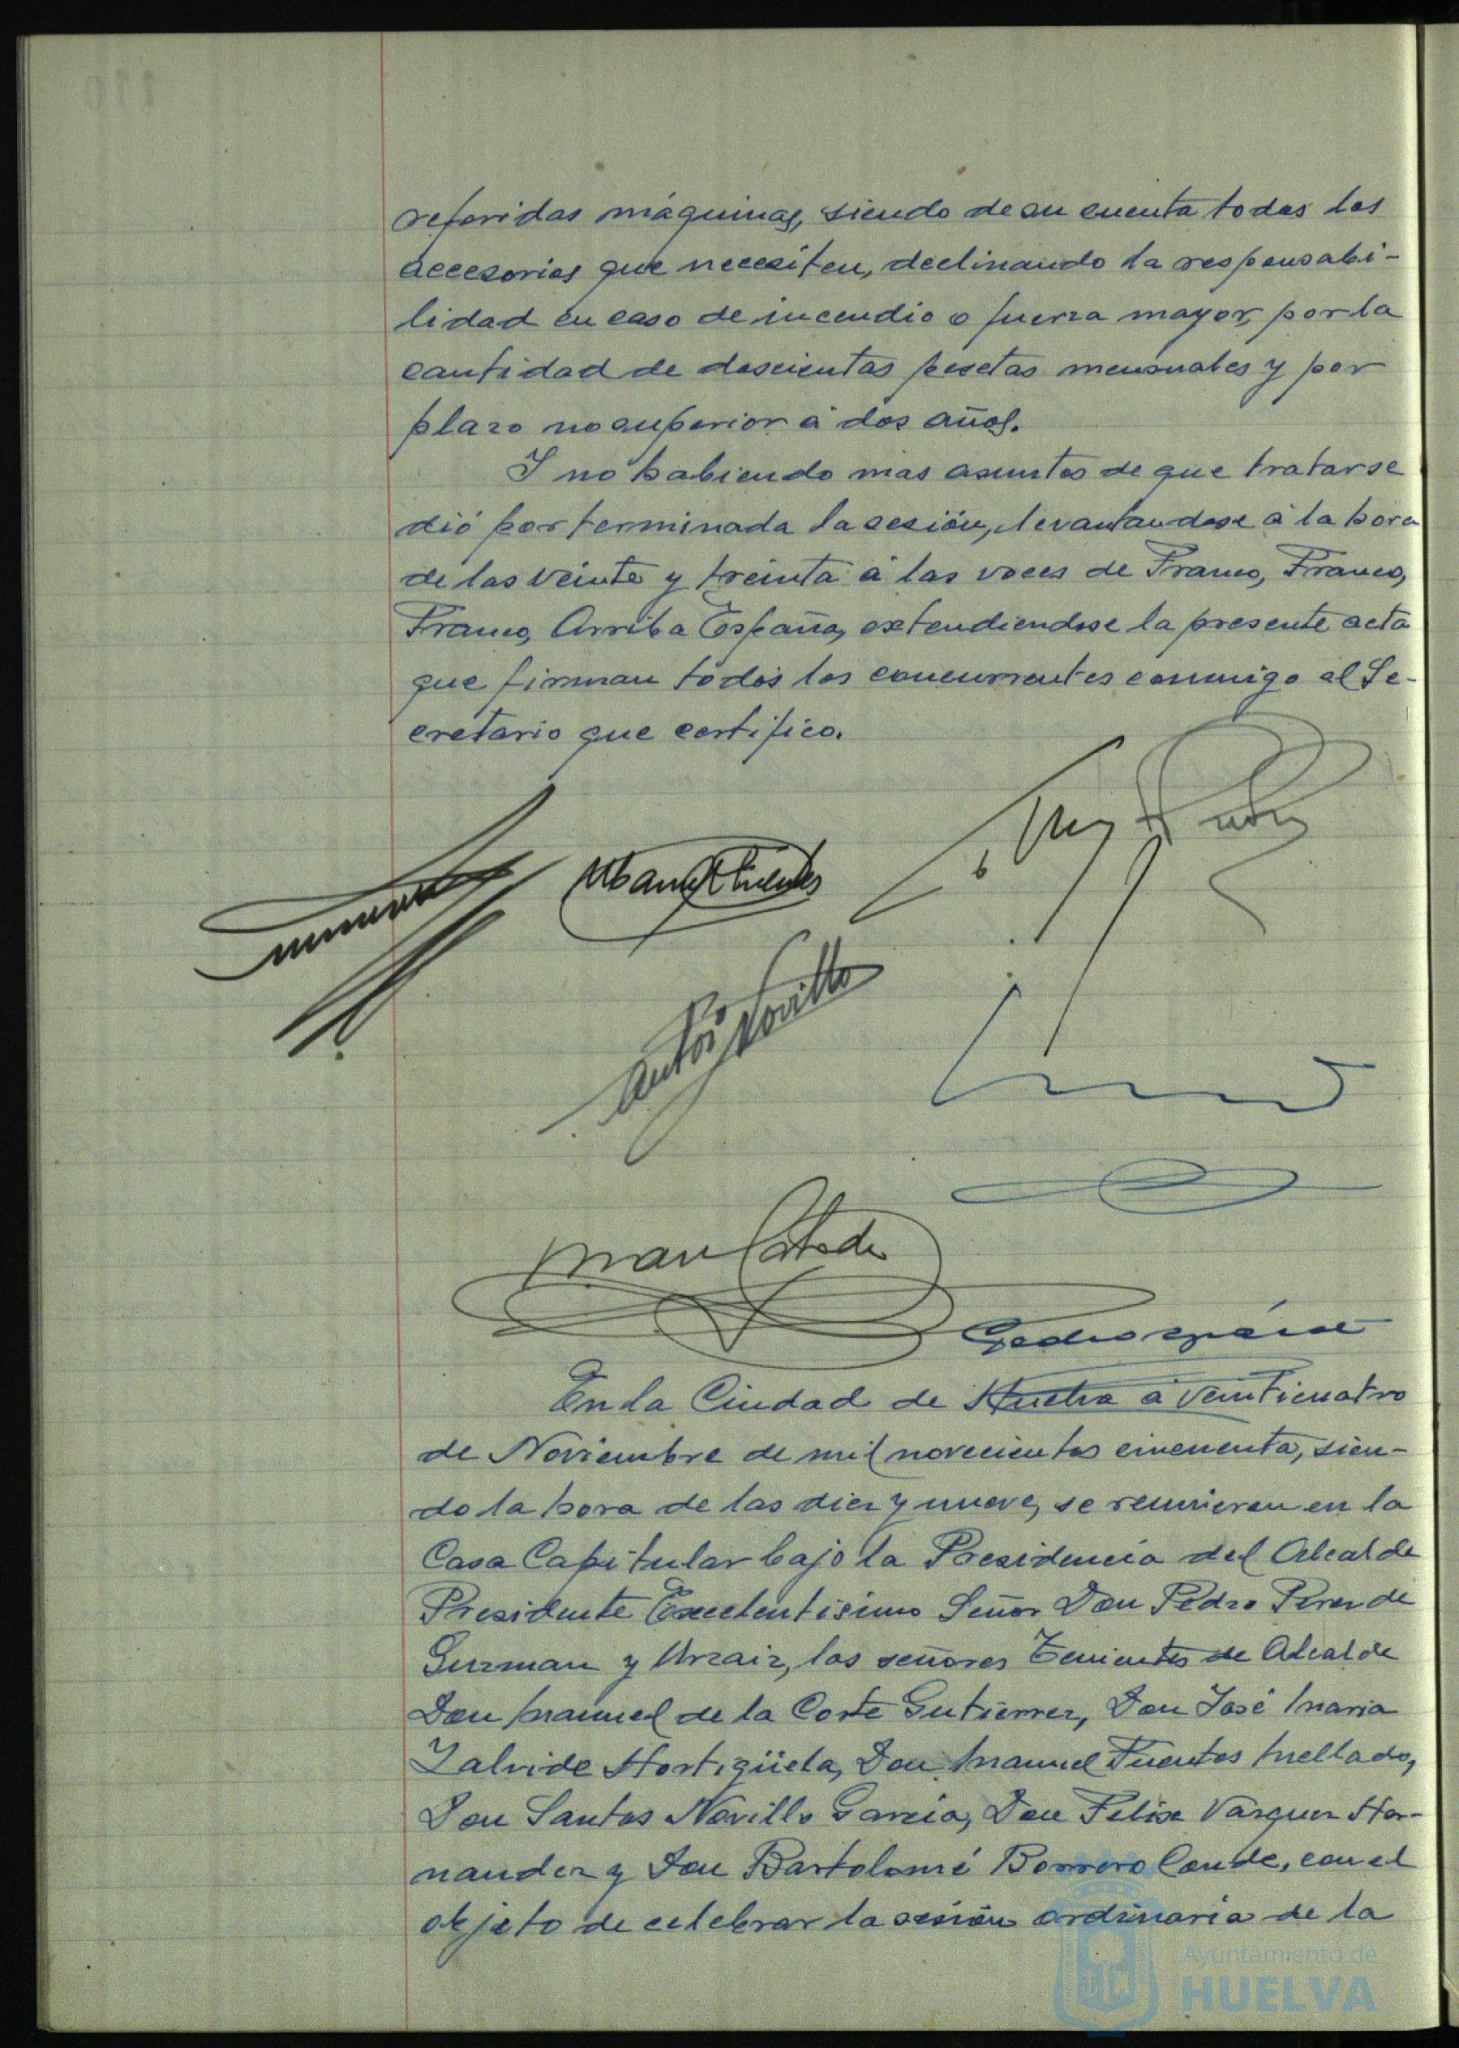 referidas máquinas, siendo de su cuenta todos los
accesorios que necesiten, declinando la responsabi-
lidad en caso de incendio o fuerza mayor, por la
cantidad de doscientas pesetas mensuales y por
plazo no superior á dos años.
Y no habiendo mas asuntos de que tratar se
dió por terminada la sesión, levantandose á la hora
de las veinte y treinta á las voces de Franco, Franco,
Franco, Arriba España, extendiendose la presente acta
que firman todos los concurrentes conmigo el Se-
cretario que certifico.
Manuel Fuentes
Novillo
En la Ciudad de Huelva á veinticuatro
de Noviembre de mil novecientos cincuenta, sien-
do la hora de las diez y nueve, se reunieron en la
Casa Capitular bajo la Presidencia del Alcalde
Presidente Excelentisimo Señor Don Pedro Perez de
Guzman y Urzaiz, los señores Tenientes de Alcalde
Don Manuel de la Corte Gutierrez, Don José Maria
Zalvide Hortigüela, Don Manuel Fuentes Mellado,
Don Santos Novillo Garcia, Don Felix Vazquez Her-
nandez y Don Bartolomé Borrero Conde, con el
objeto de celebrar la sesión ordinaria de la
Ayuntamiento de
HUELVA